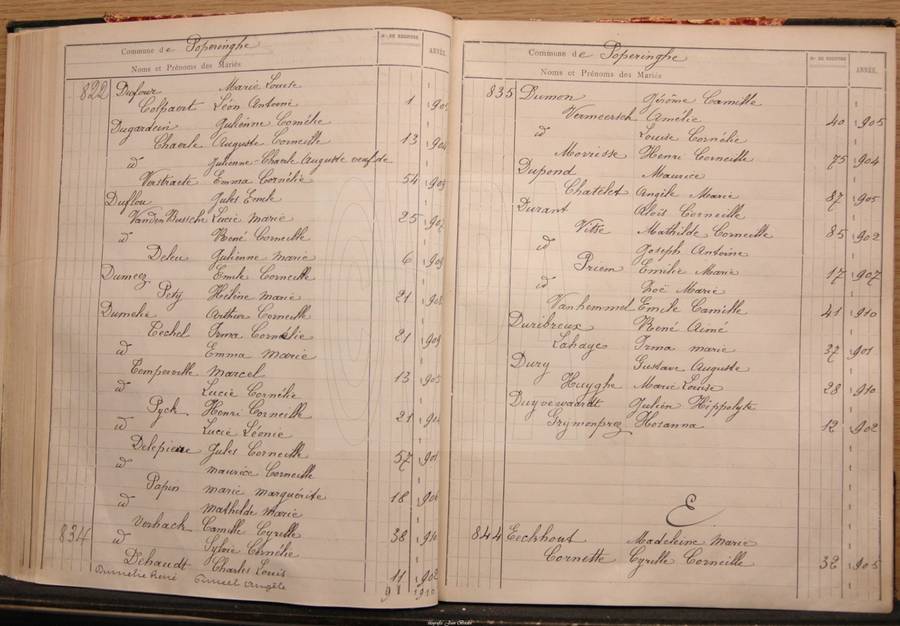 Commune de Poperinghe
Nº DE REGISTRE
ANNÉE
Noms et Prénoms des Mariés
822 Dufour Marie Louise
Colpaert Léon Antoine 1 905
Dugardein Julienne Cornélie
Chaerle Auguste Corneille 13 904
id Julienne Chaerle Auguste veuf de
Verstraete Emma Cornélie 54 905
Duflou Jules Emile
Vanden Bussche Lucie Marie 25 907
id René Corneille
Deleu Julienne Marie 6 909
Dumeez Emile Corneille
Pety Hélène Marie 21 908
Dumelie Arthur Corneille
Techel Irma Cornélie 21 909
id Emma Marie
Comperville Marcel 13 905
id Lucie Cornélie
Pyck Henri Corneille 21 910
id Lucie Léonie
Delepiere Jules Corneille 57 901
id Maurice Corneille
Papin Marie Marguérite 18 908
id Mathilde Marie
Verhack Camille Cyrille 38 910
834 id Sylvie Cornélie
Dehaudt Charles Louis 11 902
Dumelie René
Commune de Poperinghe
Nº DE REGISTRE
ANNÉE.
Noms et Prénoms des Mariés
835 Dumon Jérôme Camille
Vermeersch Amélie 40 905
id Louise Cornélie
Morrisse Henri Corneille 75 904
Dupond Maurice
Chatelet Angèle Marie 87 905
Durant Aloïs Corneille
Vitse Mathilde Corneille 85 902
id Joseph Antoine
Priem Emilie Marie 17 907
id Zoé Marie
Vanhemmel Emile Camille 41 910
Duribreux René Aimé
Lahaye Irma Marie 37 901
Dury Gustave Auguste
Huyghe Marie Louise 28 910
Duyvewaardt Julien Hippolyte
Grymonprez Hosanna 12 902
E
844 Eeckhout Madeleine Marie
Cornette Cyrille Corneille 32 905